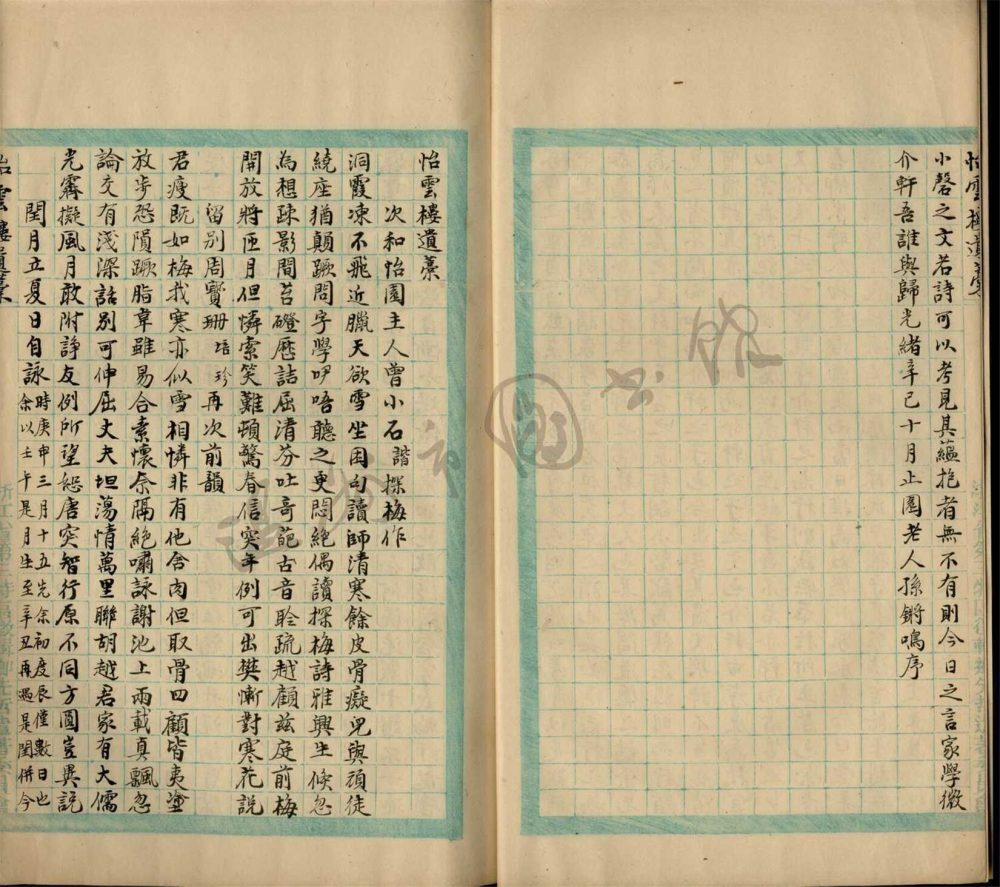 怡雲樓遺稾
小磬之文若詩可以考見其蘊抱者無不有則今日之言家學微
介軒吾誰與歸光緒辛巳十月止園老人孫鏘鳴序
怡雲樓遺稾
次和怡園主人曾小石諧探梅作
洞霞凍不飛近臘天欲雪坐困句讀師清寒餘皮骨癡兒與頑徒
繞座猶顛蹶問字學咿唔聽之更悶絕偶讀探梅詩雅興生倏忽
為想疎影間苔磴歷詰屈清芬吐奇葩古音聆疏越顧茲庭前梅
開放將匝月但憐索笑難頓驚春信突年例可出樊慚對寒花說
留別周寶珊培珍再次前韻
君瘦既如梅我寒亦似雪相憐非有他舍肉但取骨四顧皆夷塗
放步恐隕蹶脂韋雖易合素懷奈隔絕嘯詠謝池上兩載真飄忽
論交有淺深話別可伸屈丈夫坦蕩情萬里聯胡越君家有大儒
光霽擬風月敢附諍友例所望恕唐突智行原不同方圓豈異說
閏月立夏日自詠時庚申三月十五先余初度辰僅數日也
余以壬午是月生至辛丑再遇是閏併今
怡雲樓遺稾